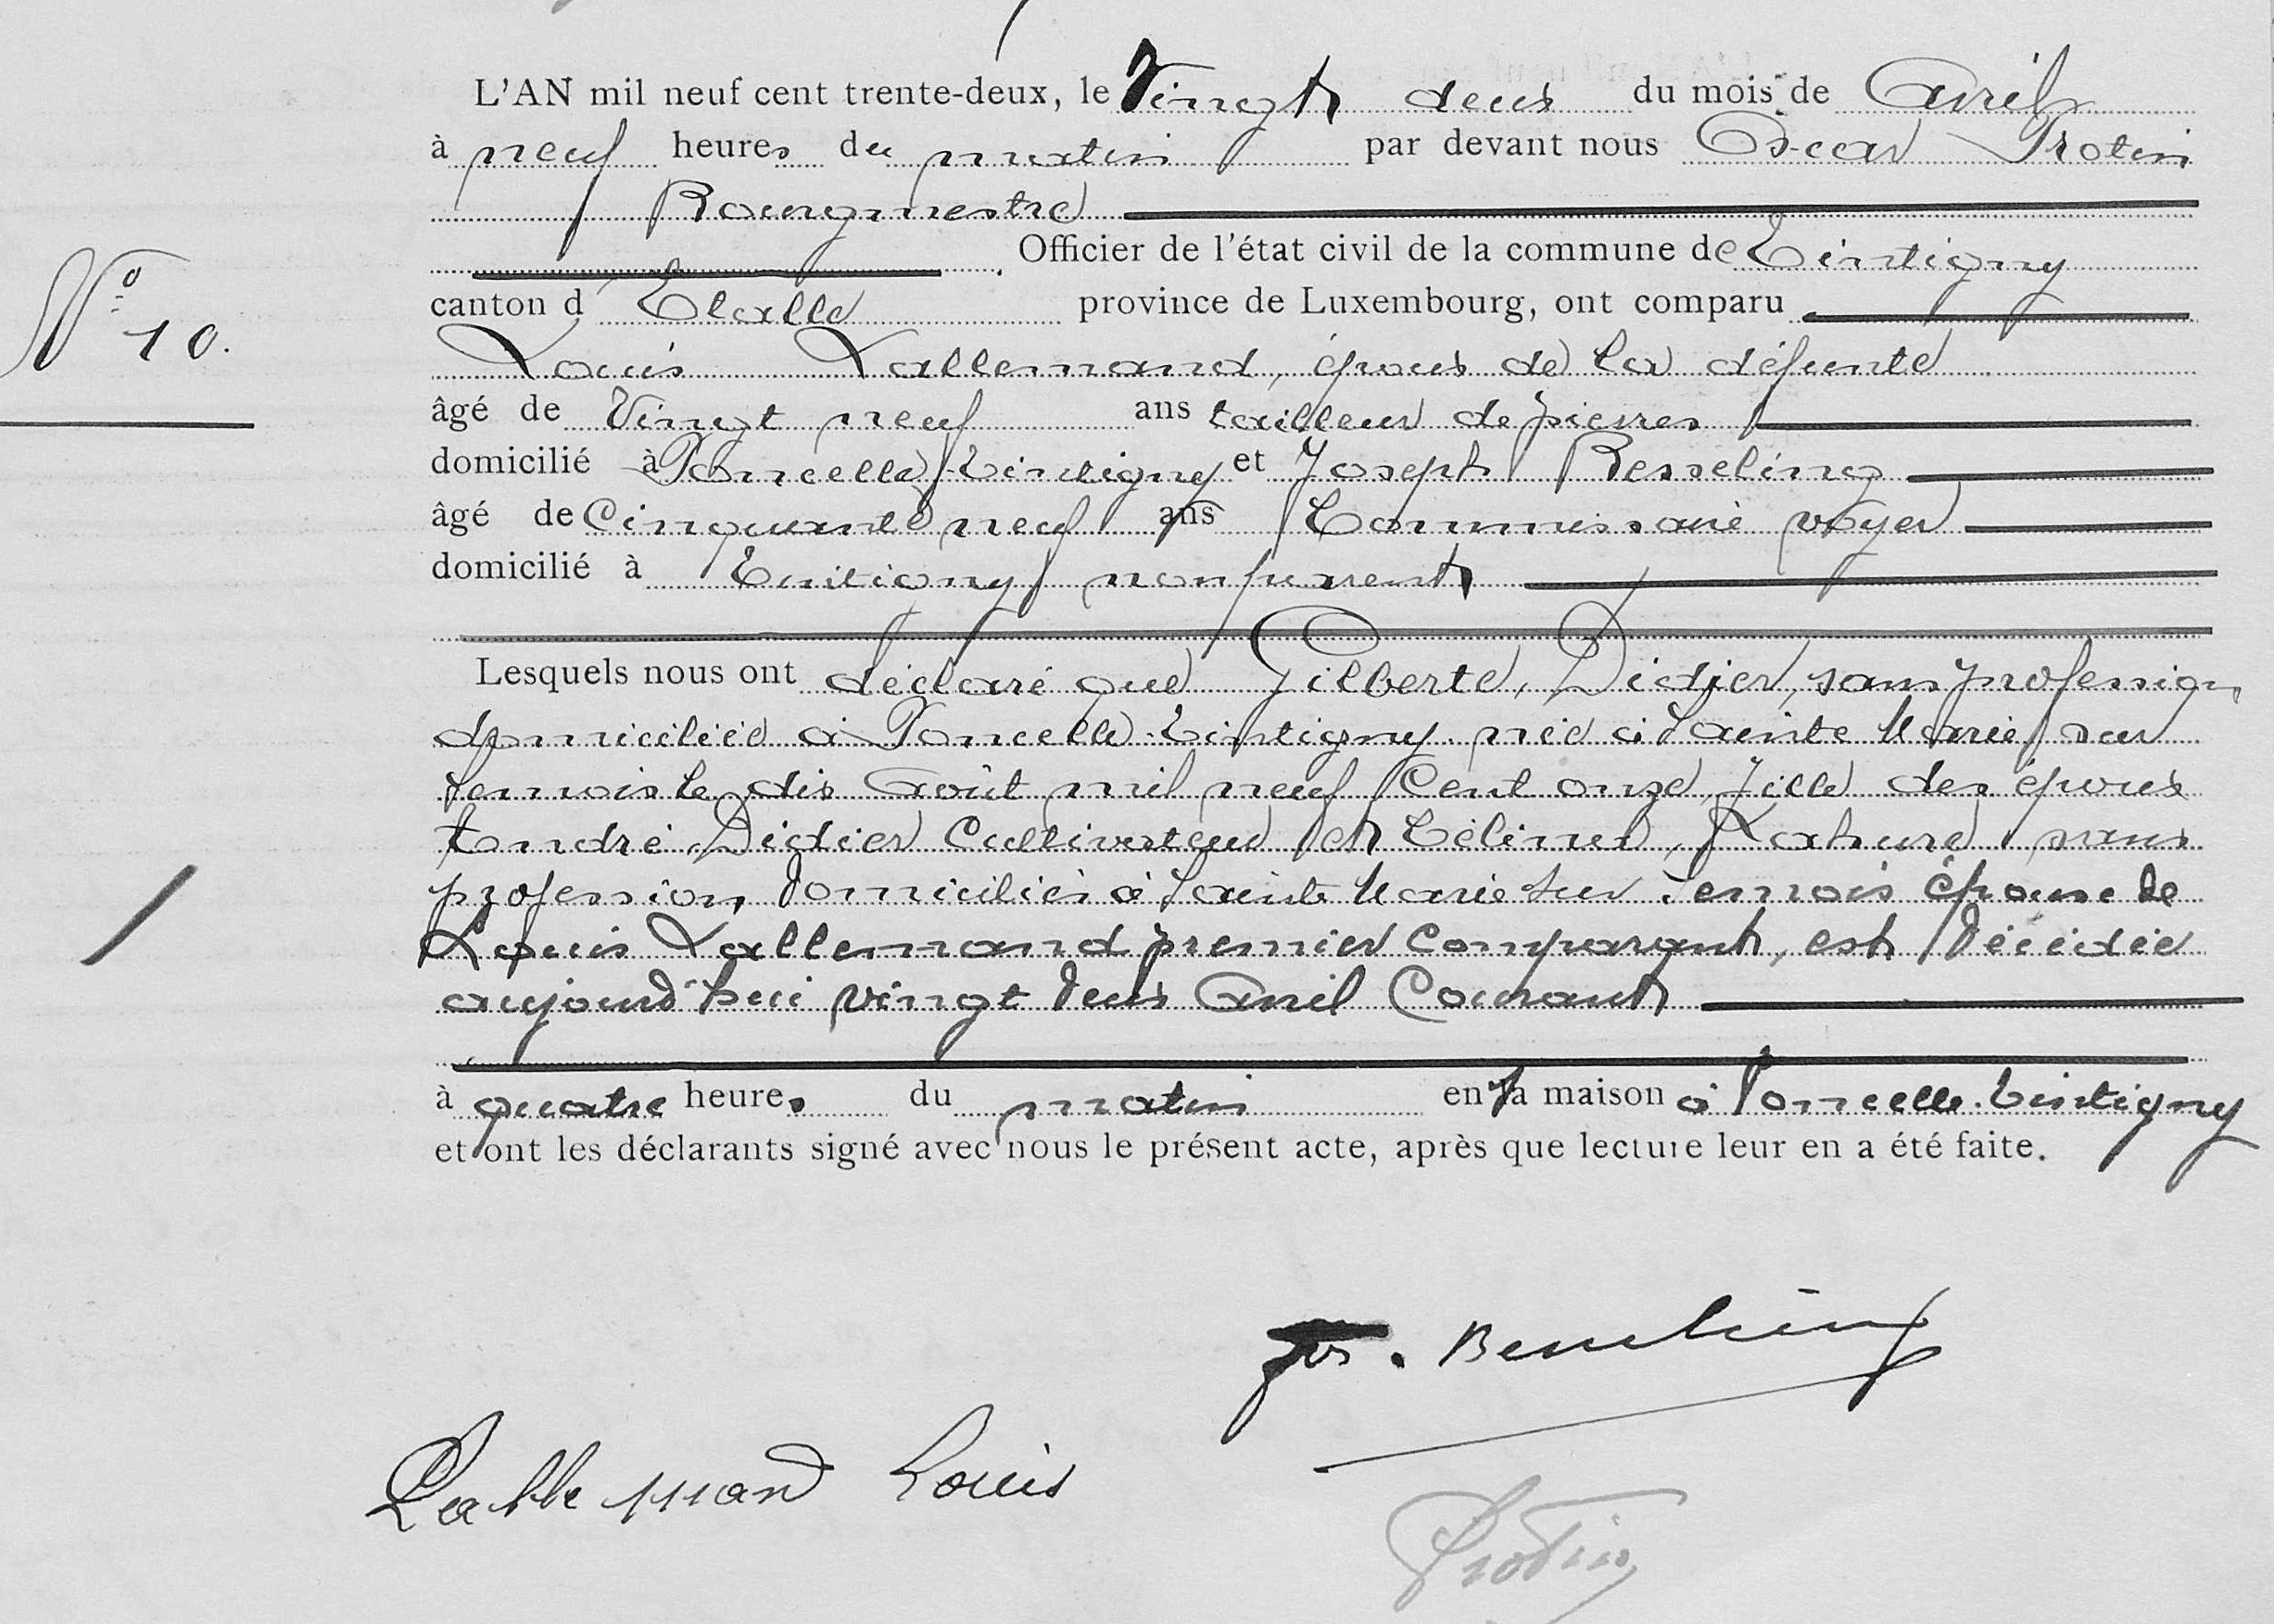 L'AN mil neuf cent trente-deux, le Vingt deux du mois de Avril
à neuf heures du matin par devant nous Oscar Protin
Bourgmestre
Officier de l'état civil de la commune de Tintigny
N° 10.
canton d'Etalle province de Luxembourg, ont comparu
Louis Lallemand, époux de la défunte
âgé de Vingt neuf ans tailleur de pierres
domicilié à Poncelle-Tintigny et Joseph Besseling
âgé de Cinquante neuf ans Commissaire voyer
domicilié à Tintigny non parent
Lesquels nous ont déclaré que Gilberte, Didier, sans profession
domiciliée à Poncelle-Tintigny née à Sainte Marie sur
Semois le dix Août mil neuf Cent onze, fille des époux
André, Didier Cultivateur et Céline, sans
profession, domiciliés à Sainte Marie sur Semois épouse de
Louis Lallemand premier Comparant, est décédée
aujourd'hui vingt deux Avril Courant
à quatre heures du matin en sa maison à Poncelle-Tintigny
et ont les déclarants signé avec nous le présent acte, après que lecture leur en a été faite.
Jos. Besseling
Lallemand Louis
Protin